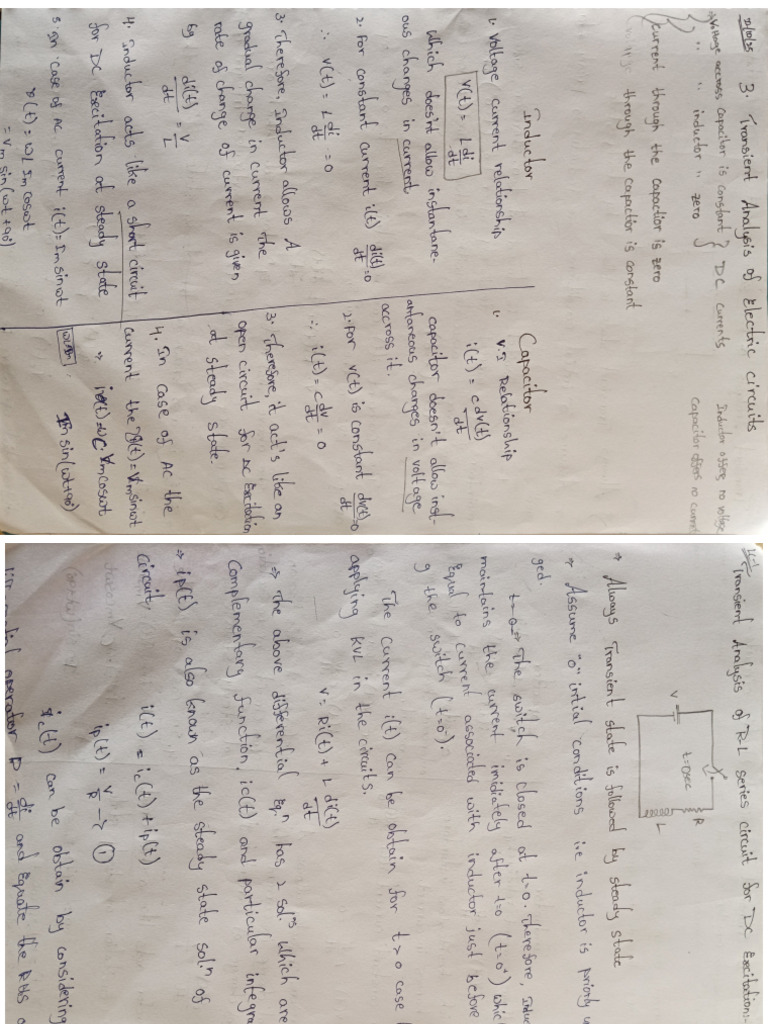 2/10/25 3. Transient Analysis of Electric circuits
Voltage accross capacitor is constant } DC currents
" " inductor " zero
current through the capactior is zero
through the capacitor is constant
Inductor offers no voltage
Capacitor offers no current
Inductor
1. Voltage current relationship
v(t) = L di/dt
which doesn't allow instantane-
ous changes in current
2. For constant current i(t) di(t)/dt = 0
∴ v(t) = L di/dt = 0
3. Therefore, Inductor allows A
gradual change in current The
rate of change of current is given
by di(t)/dt = V/L
4. Inductor acts like a short circuit
for DC Excitation at steady state
5. In case of AC current i(t) = Im sinωt
v(t) = ωL Im cosωt
= Vm sin(ωt + 90°)
Capacitor
1. V-I Relationship
i(t) = c dv(t)/dt
capacitor doesn't allow inst-
antaneous changes in voltage
accross it.
2. For v(t) is constant dv(t)/dt = 0
∴ i(t) = c dv/dt = 0
3. Therefore, it act's like an
open circuit for DC Excitation
at steady state.
4. In case of AC the
current the v(t) = Vm sinωt
⇒ i(t) = ωC. Vm cosωt
Im sin(ωt + 90°)
Transient Analysis of R-L series circuit for DC Excitation:-
V t=0sec R L
⇒ Always Transient state is followed by steady state
⇒ Assume "0" intial conditions i.e inductor is priorly
ged.
t=0 ⇒ The switch is closed at t=0. Therefore,
maintains the current imidiately after t=0 (t=0⁺)
Equal to current associated with inductor just before
g the switch (t=0⁻).
The current i(t) can be obtain for t>0 case
applying KVL in the circuits.
V = Ri(t) + L di(t)/dt
⇒ The above differential Eqⁿ has 2 solⁿs which are
Complementary function, ic(t) and particular
⇒ ip(t) is also known as the steady state solⁿ of
circuit
i(t) = ic(t) + ip(t)
ip(t) = V/R → ①
ic(t) can be obtain by considering
operator D = di/dt and Equate the RHS